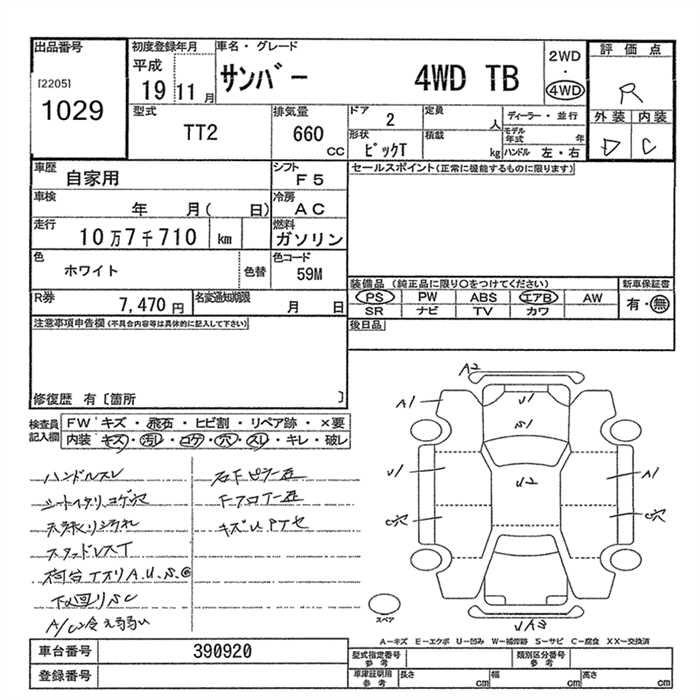 出品番号 初度登録年月 車名・グレード 評価点
[2205]
1029
平成
19 11月
サンバー 4WD TB
2WD
・
4WD
R
型式 排気量 ドア 定員 ディーラー・並行 外装 内装
TT2 660 CC 2 人 モデル年式 年
D C
形状 積載 kg ハンドル 左・右
ピックT
車歴 シフト セールスポイント(正常に機能するものに限ります)
自家用 F5
車検 年 月( 日) 冷房 AC
走行 10万7千710 km 燃料 ガソリン
色 ホワイト 色替 色コード 59M
装備品 (純正品に限り〇をつけてください) 新車保証書
R券 7,470円 名変通知期限 月 日
PS PW ABS エアB AW 有・無
SR ナビ TV カワ
注意事項申告欄(不具合内容等は具体的に記入して下さい) 後日品
修復歴 有〔箇所 〕
検査員記入欄
FW キズ・飛石・ヒビ割・リペア跡・×要
内装 キズ・汚レ・コゲ・穴・スレ・キレ・破レ
ハンドルスレ
シート
スタッドレスT
荷台 A.U.S.
下廻りSC
A/C
A2
A1
U1
S1
U1
U2
A1
C穴
C穴
スペア
A-キズ E-エクボ U-凹み W-補修跡 S-サビ C-腐食 XX-交換済
車台番号 390920
登録番号
型式指定番号 参考 類別区分番号 参考
車庫証明用 参考 長さ cm 幅 cm 高さ cm